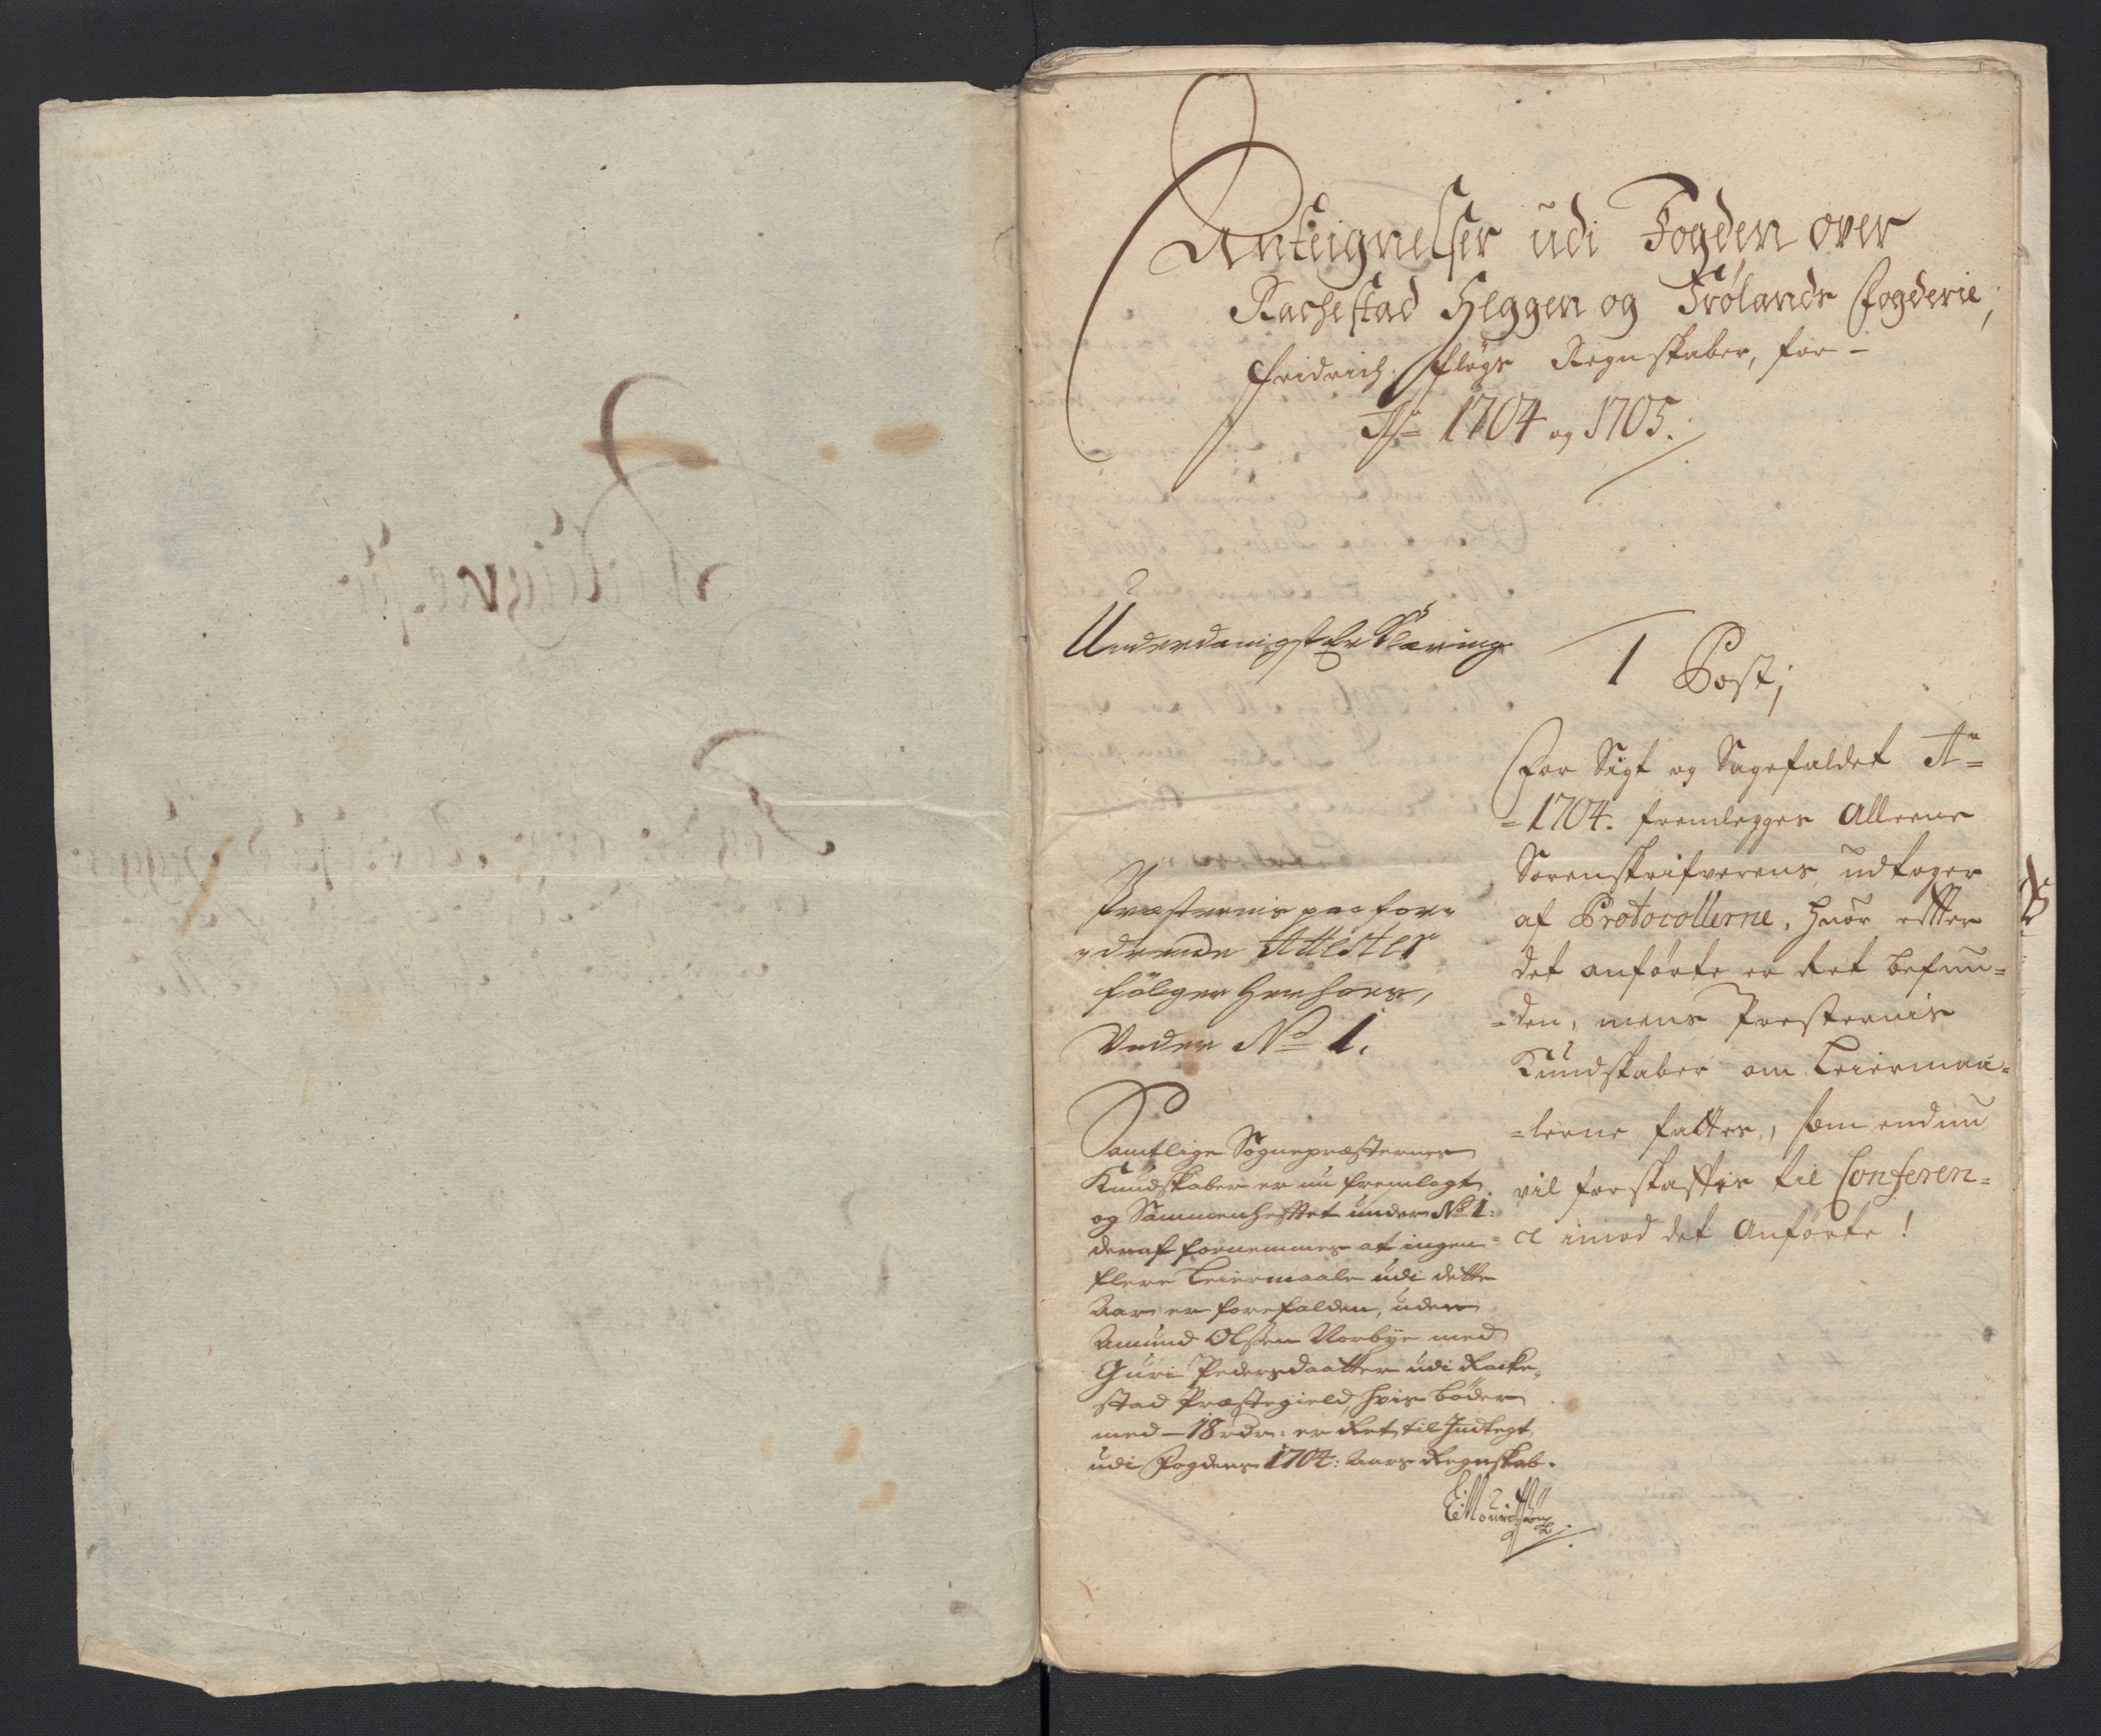 Anteignelser udi Fogden over
Rachestad Heggen og Frølands Fogderie,
Fridrich Fløgs Regnskaber, for -
A° 1704 og 1705.
Underdanigste Erklæring
1 Post;
For Sigt og Sagefaldet A°=
=1704. fremlegges Alleene
Sorenskrifverens udtoger
af Protocollerne, huor effter
det anførte er Ret befun=
=den, mens Presternis
Kundskaber om Leiermaa=
=lerne fattes, som endnu
vil forskaffis til Conferen=
=ce imod det Anførte!
Præsternis paa for=
=drende Attester
følger herhoes,
Under No 1.
Samtlige Sognepræsternes
Kundskaber er nu fremlagt
og Sammenhefftet under No 1:
deraf fornemmes at ingen
flere Leiermaale udi dette
Aar er forefalden, uden
Amund Olsen Norbye med
Guri Pedersdaatter udi Racke=
stad Præstegield, hvis bøder
med - 18 rdr: er Ret til Indtegt
udi Fogdens 1704: Aars Regnskab.